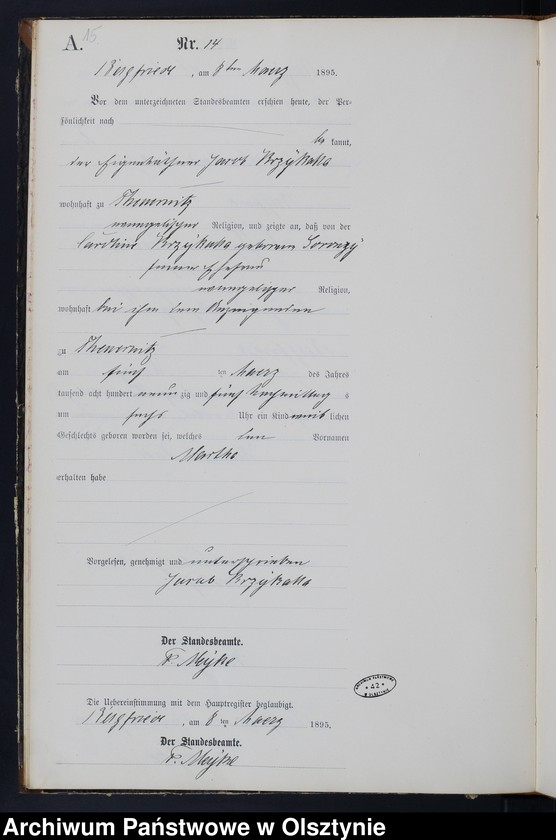 A. 15
Nr. 14
Bergfriede, am 8ten Maerz 1895.
Vor dem unterzeichneten Standesbeamten erschien heute, der Per-
sönlichkeit nach
be kannt,
der Eigenkäthner Jacob Krzykalla
wohnhaft zu Thewernitz
evangelischer Religion, und zeigte an, daß von der
Caroline Krzykalla geborenen
seiner Ehefrau
evangelischer Religion,
wohnhaft bei ihm dem Anzeigenden
zu Thewernitz
am fünf ten Maerz des Jahres
tausend acht hundert neun zig und fünf Nachmittag s
um sechs Uhr ein Kind weib lichen
Geschlechts geboren worden sei, welches den Vornamen
Martha
erhalten habe
Vorgelesen, genehmigt und unterschrieben
Jacob Krzykalla
Der Standesbeamte.
Die Uebereinstimmung mit dem Hauptregister beglaubigt.
Bergfriede, am 8 ten Maerz 1895.
Der Standesbeamte.
42
Archiwum Państwowe w Olsztynie